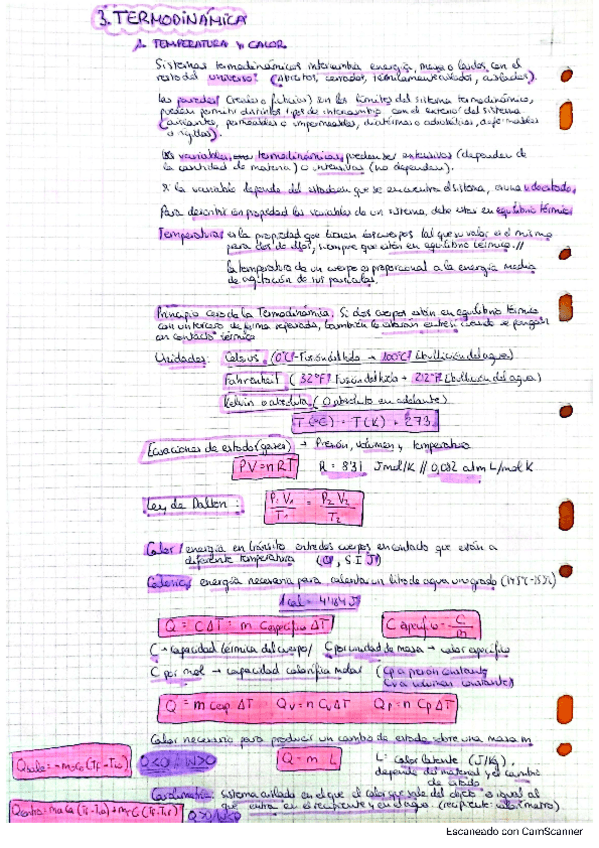 3. TERMODINÁMICA
1. TEMPERATURA y CALOR
Sistemas termodinámicos intercambia energía, masa o ambos, con el
resto del universo. (Abiertos, cerrados, aislados).
Las paredes (reales o ficticias) en los límites del sistema termodinámico,
pueden permitir distintos tipos de intercambio con el exterior del sistema
permeables o impermeables, diatérmanas o adiabáticas, deformables
o rígidas).
Las variables termodinámicas, pueden ser extensivas (dependen de
la cantidad de materia) o intensivas (no dependen).
Si la variable depende del estado en que se encuentra el sistema, de estado.
Para describir en propiedad las variables de un sistema, debe estar en equilibrio térmico.
Temperatura es la propiedad que tienen los cuerpos tal que su valor es el mismo
para dos de ellos, siempre que estén en equilibrio térmico.//
La temperatura de un cuerpo es proporcional a la energía media
de agitación de sus partículas.
Principio cero de la Termodinámica. Si dos cuerpos están en equilibrio térmico
con un tercero de forma separada, también lo estarán entre sí cuando se pongan
en contacto térmico
Unidades: Celsius (0°C - Fusión del hielo → 100°C Ebullición del agua)
Fahrenheit (32°F Fusión del hielo → 212°F Ebullición del agua)
Kelvin o absoluta (0 absoluto en adelante)
T(°C) = T(K) + 273
Ecuaciones de estado (gases) → Presión, volumen y temperatura
PV = nRT R = 8'31 J/mol/K // 0,082 atm L/mol K
Ley de Dalton: P₁V₁/T₁ = P₂V₂/T₂
Calor / energía en tránsito entre dos cuerpos en contacto que están a
diferente temperatura (Q, SI J)
Caloría / energía necesaria para calentar un litro de agua un grado
1 cal = 4'184 J
Q = C ΔT = m C específico ΔT C específico = C/m
C → capacidad térmica del cuerpo / C por unidad de masa → calor específico
C por mol → capacidad calorífica molar (Cp a presión constante
Cv a volumen constante)
Q = m Cesp ΔT Qv = n Cv ΔT Qp = n Cp ΔT
Calor necesario para producir un cambio de estado sobre una masa m
Q = m L L: calor latente (J/kg),
depende del material y el cambio
de estado
Q<0 / W>0
Calorimetría: Sistema aislado en el que el calor que sale del objeto es igual al
que entra en el recipiente y en el agua. (recipiente: calorímetro)
Escaneado con CamScanner